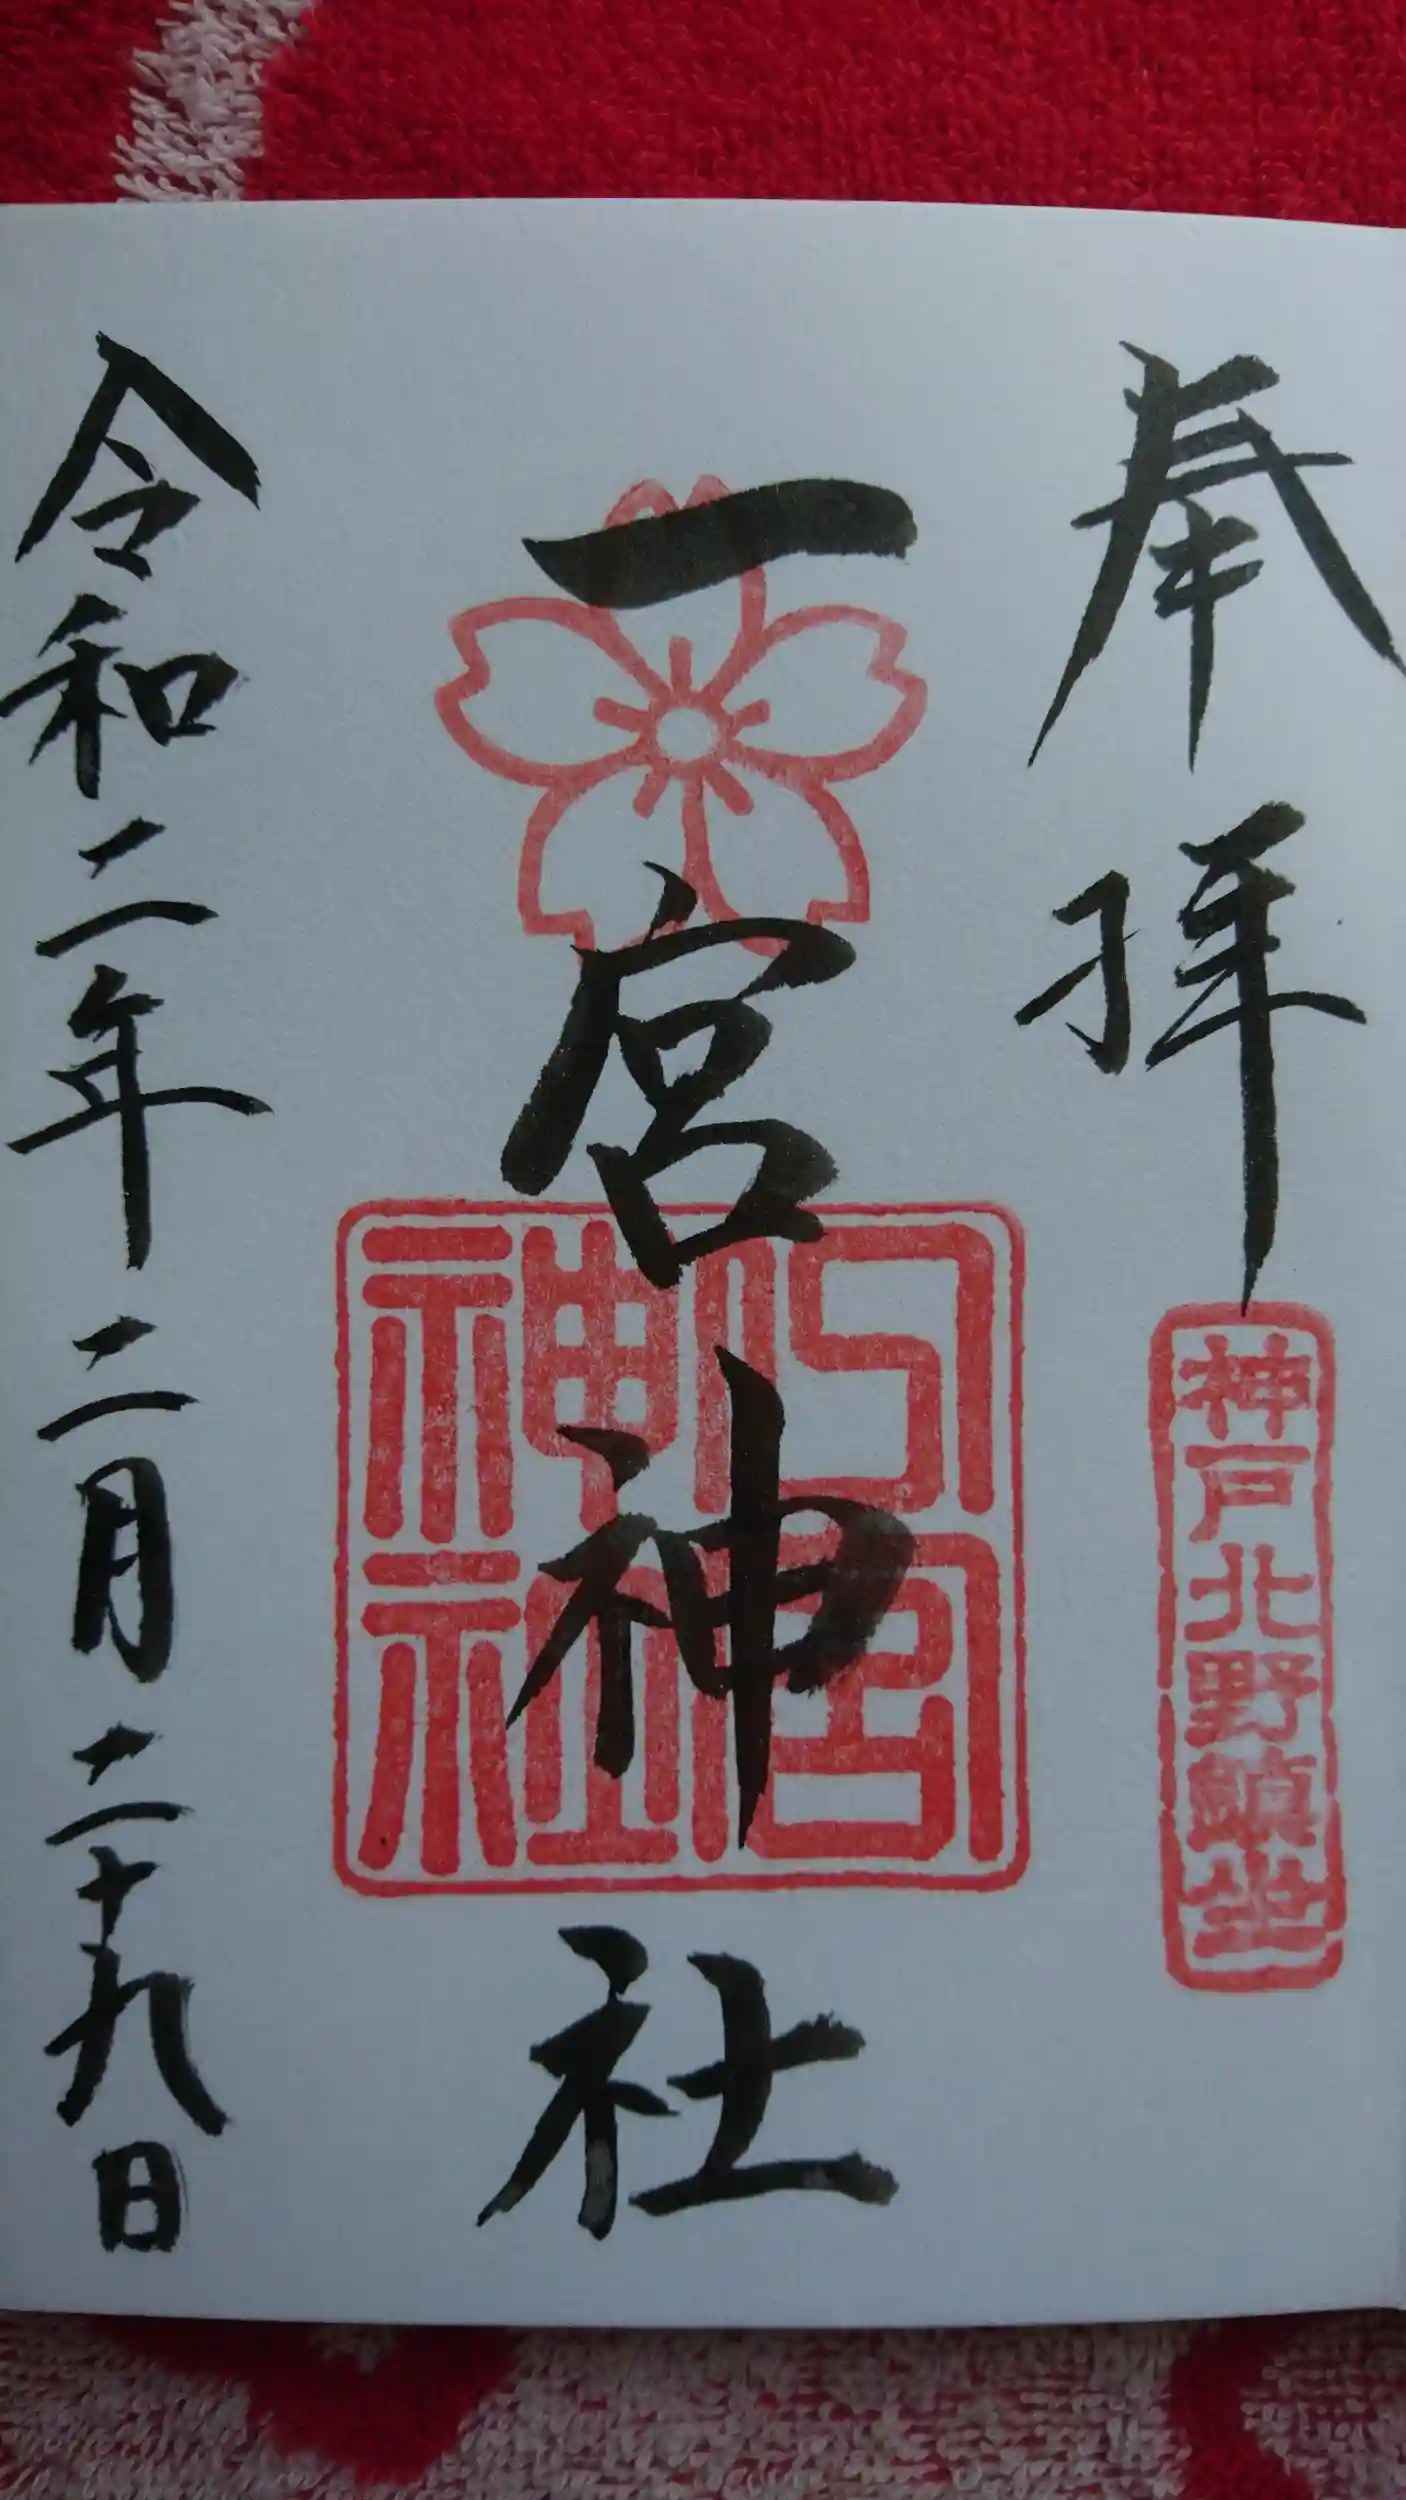 奉拝
神戸北野鎮坐
一宮神社
一宮神社
令和二年二月二十九日